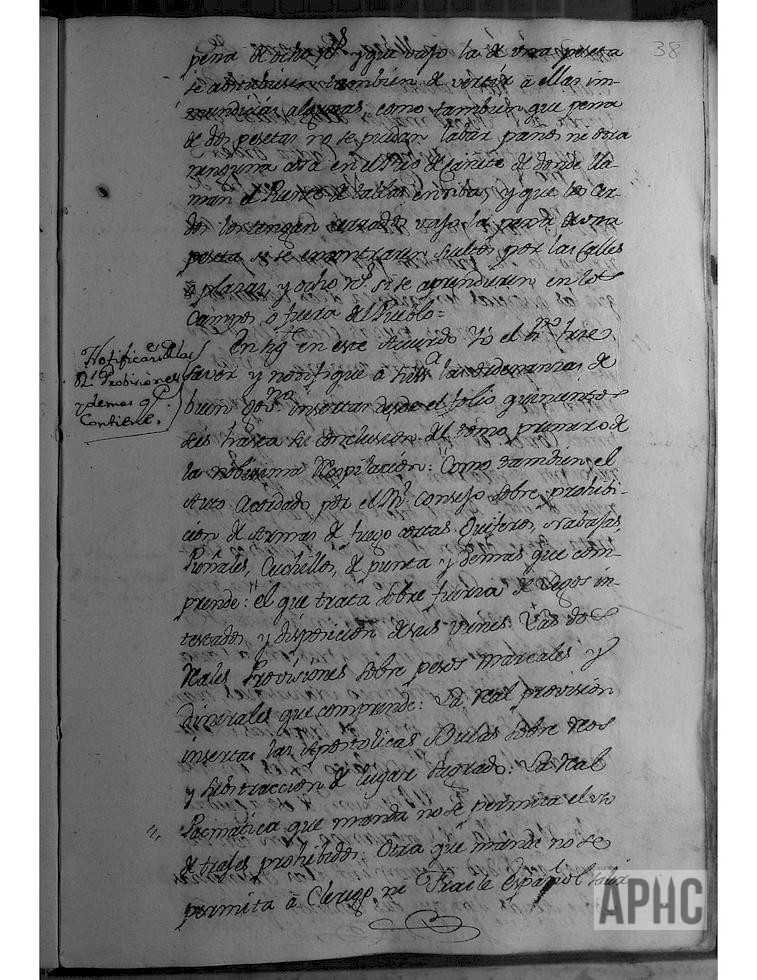 38
pena de ocho rs. y que vajo la de una peseta
se abstubiesen tambien de verter â ellas im-
mundicias algunas, como tambien que pena
de dos pesetas no se puedan labar panos ne otra
ninguna cosa en el Rio de Cañete de donde lla-
man el Puente de tablas en riba, y que los Cer-
dos los tengan cerrados vajo la pena de una
peseta si se encontraren sueltos por las Calles
o plazas, y ocho rs. si se aprendieren en los
Campos, ô fuera del Pueblo=
Notificaronse las
Rs. Probisiones
y demas qe.
Contiene.
En este Acuerdo Yo el hize
saver y notifique â sus las ordenanzas de
buen govno. insertas desde el folio quinientos
seis hasta su conclusion del tomo primero de
la nobisima Recopilacion: Como tambien el
Auto Acordado por el Rl. Consejo sobre prohibi-
cion de Armas de fuego cortas Quiferos, Nabajas,
Puñales, Cuchillos, de punta y demas que com-
prende: el que trata sobre de in-
testados y disposicion de sus vienes. Las dos
Reales Provisiones sobre pesos marcales y
dinerales que comprende: La Real provision
insertas las Apostolicas Bulas sobre Reos
y de lugar sagrado: La Real
Pacmatica que manda no se permita el uso
de trajes prohibidos. Otra que manda no se
permita â Clerigo, ni Fraile Español salir
APHC